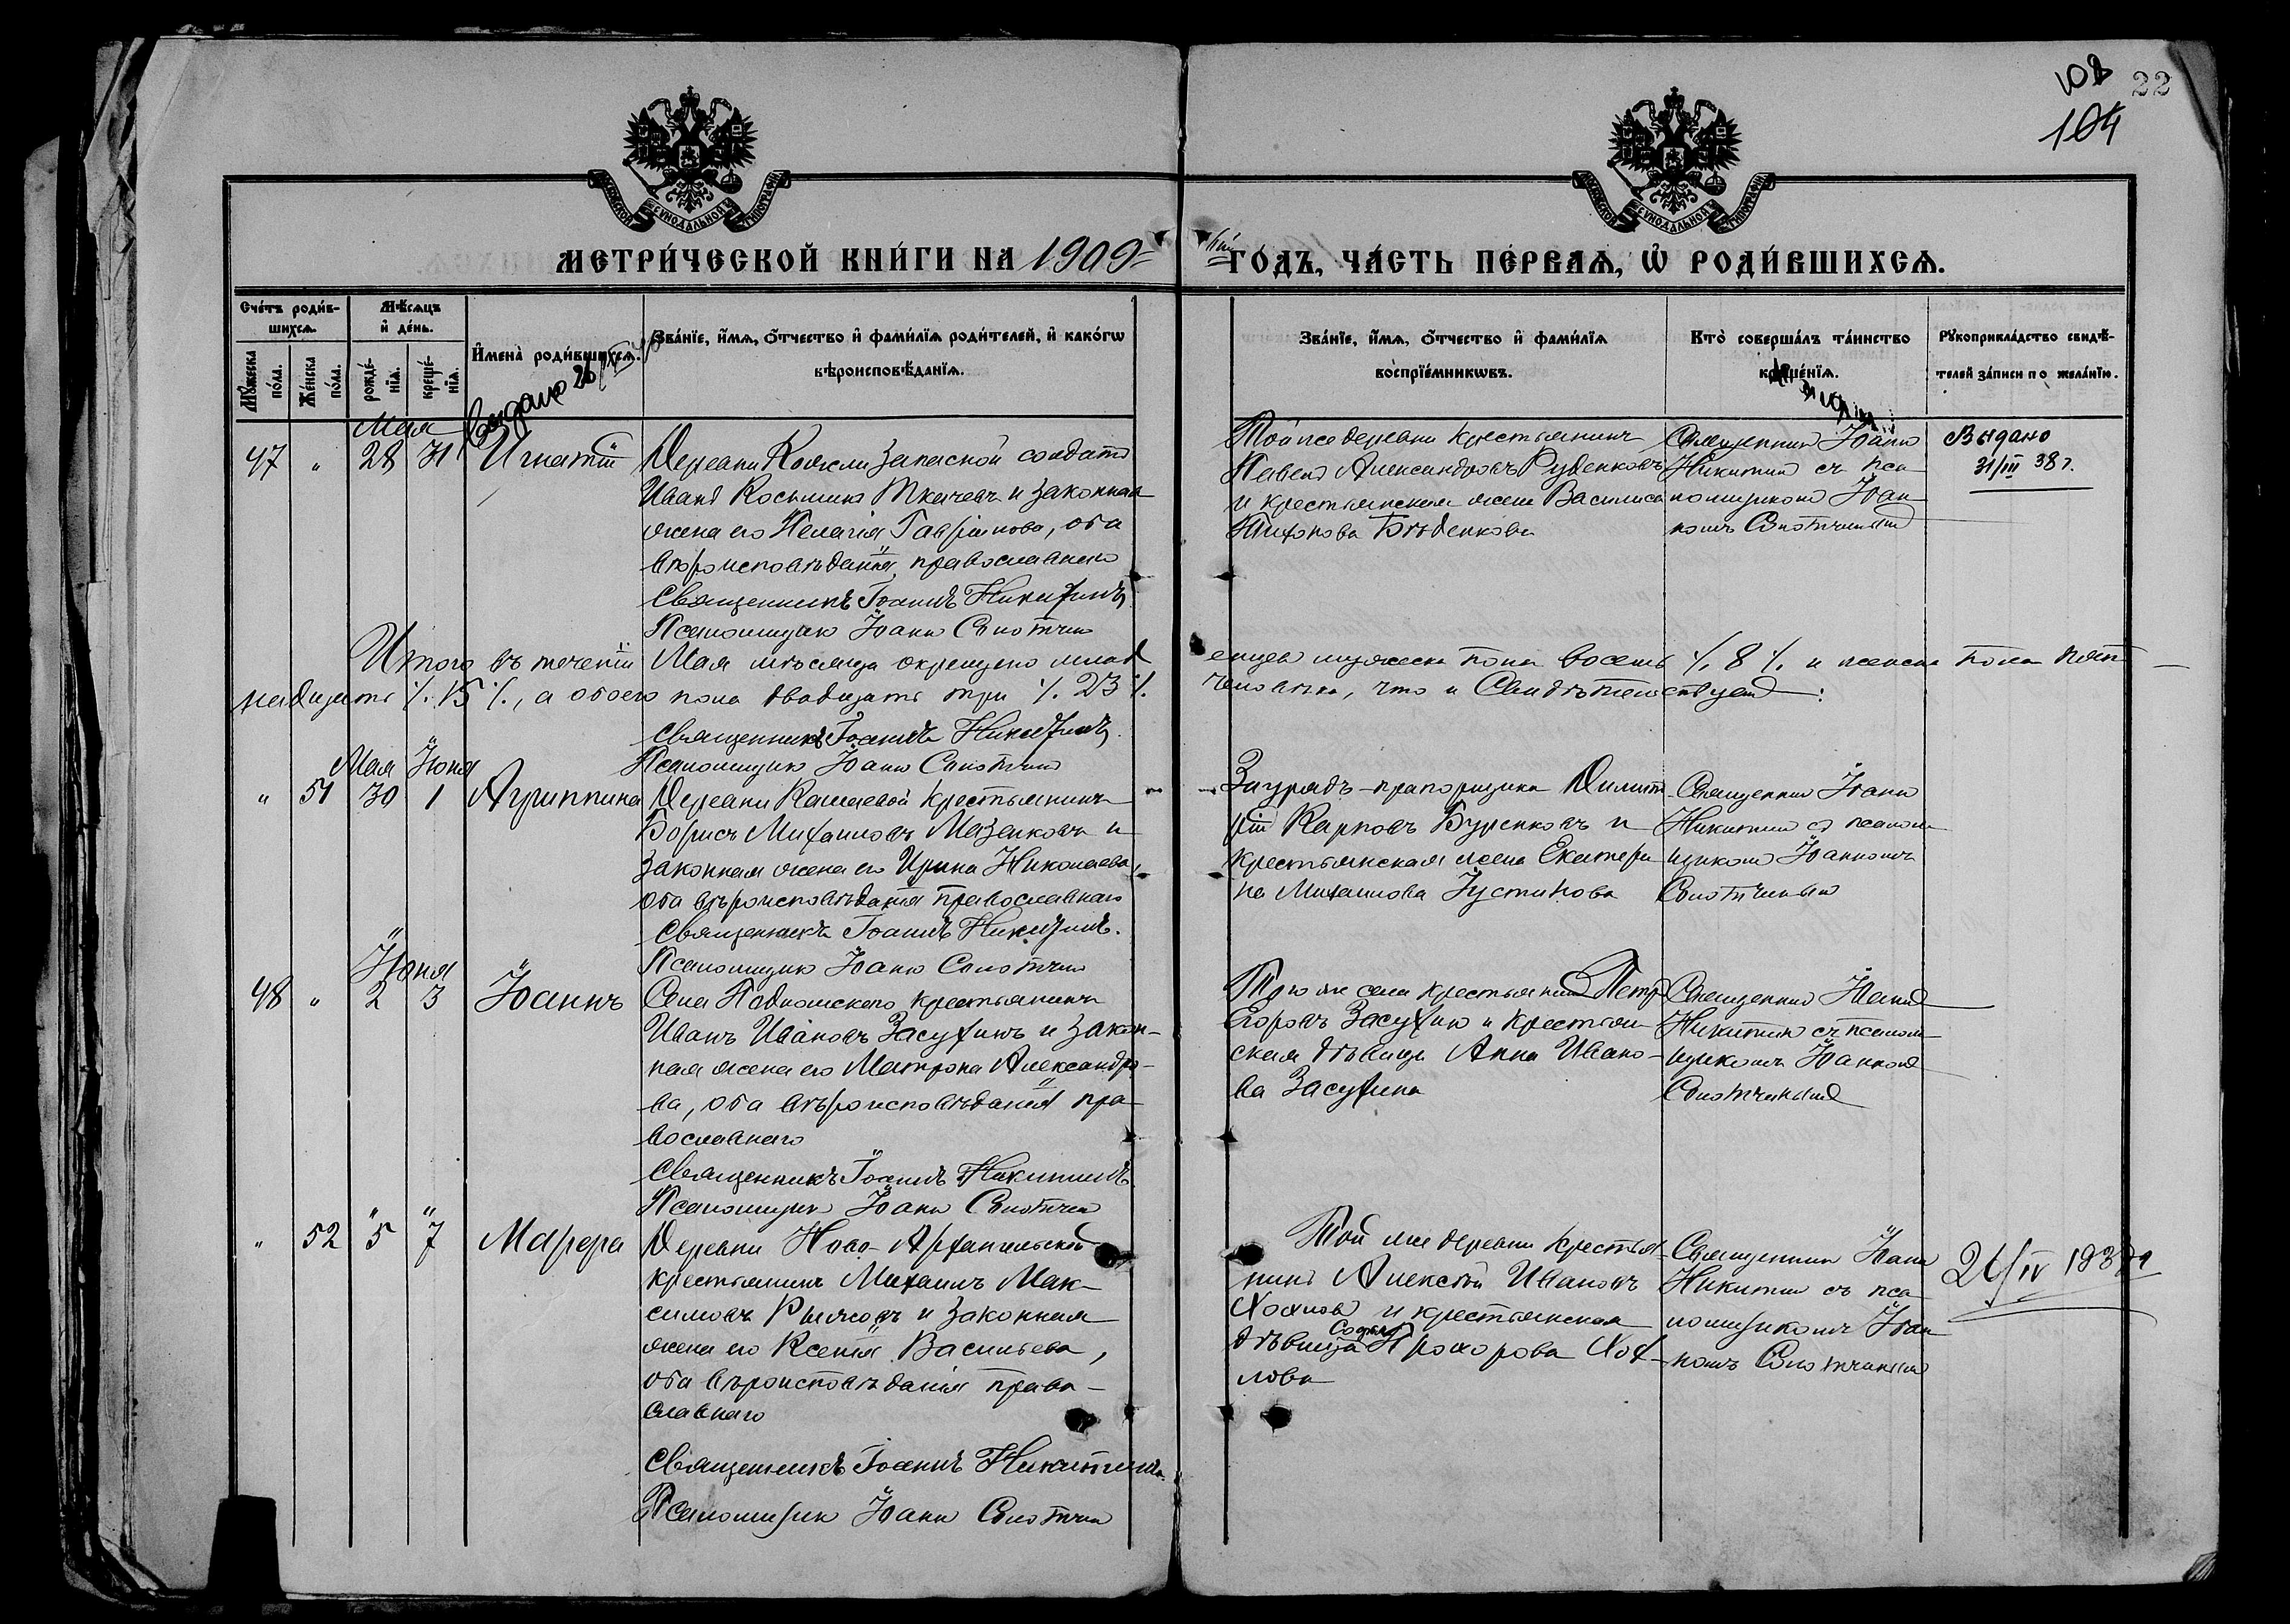 108 22
104
МОСКОВСКОЙ СѴНОДАЛЬНОЙ ТИПОГРАФІИ
МОСКОВСКОЙ СѴНОДАЛЬНОЙ ТИПОГРАФІИ
МЕТРИ́ЧЕСКОЙ КНИ́ГИ НА 1909
ГО́ДЪ, ЧА́СТЬ ПЕ́РВАѦ, Ѽ РОДИ́ВШИХСѦ.
Сче́тъ роди́в-
шихсѧ.
Мꙋ́жеска по́ла.
Же́нска по́ла.
Мѣ́сѧцъ
и҆ де́нь.
рожде́-
нїѧ.
креще́-
нїѧ.
И҆мена̀ роди́вшихсѧ.
Зва́нїе, и҆́мѧ, ѻ҆́тчество и҆ фами́лїѧ роди́телей, и҆ како́гѡ
вѣроисповѣ́данїѧ.
Зва́нїе, и҆́мѧ, ѻ҆́тчество и҆ фами́лїѧ
воспрїе́мникѡвъ.
Кто̀ соверша́лъ та́инство
креще́нїѧ.
Рꙋкоприкла́дство свидѣ́-
телей за́писи по жела́нїю.
Выдано 26
Мая
47 " 28 31 Игнатій
Деревни запасной солдатъ
Иванъ Косьминъ Ткачевъ и законная
жена его Пелагія Гаврилова, оба
вѣроисповѣданія православнаго
Священникъ Іоаннъ Никитинъ
Псаломщикъ Іоаннъ
Той же деревни крестьянинъ
Павелъ Александровъ Руденковъ
и крестьянская жена Василиса
Тихонова Бѣденкова
Священникъ Іоаннъ
Никитинъ съ пса-
ломщикомъ Іоан-
номъ
Выдано
31/III 38 г.
Итого въ теченіи Мая мѣсяца окрещено млад енцевъ мужеска пола восемь /. 8 /. и женска пола пят-
надцать /. 15 /., а обоего пола двадцать три /. 23 /. человѣка, что и Свидѣтельствуемъ:
Священникъ Іоаннъ Никитинъ
Псаломщикъ Іоаннъ
Мая Іюня
" 51 30 1 Агриппина
Деревни крестьянинъ
Борисъ Михаиловъ Мазенковъ и
законная жена его Ирина Николаева,
оба вѣроисповѣданія православнаго
Священникъ Іоаннъ Никитинъ.
Псаломщикъ Іоаннъ
Зауряд-прапорщикъ Димит-
рій Карповъ Буренковъ и
крестьянская жена Екатери
на Михаилова Іустинова
Священникъ Іоаннъ
Никитинъ съ псалом
щикомъ Іоанномъ
Іюня
48 " 2 3 Іоаннъ
Села крестьянинъ
Иванъ Ивановъ Засухинъ и закон-
ная жена его Матрона Александро-
ва, оба вѣроисповѣданія пра-
вославнаго
Священникъ Іоаннъ Никитинъ
Псаломщикъ Іоаннъ
Того же села крестьянинъ Петръ
Егоровъ Засухинъ и крестьян-
ская дѣвица Анна Ивано-
ва Засухина
Священникъ Іоаннъ
Никитинъ съ псалом-
щикомъ Іоанномъ
" 52 5 7 Марѳа
Деревни Ново-Архангельской
крестьянинъ Михаилъ Мак-
симовъ Рыжовъ и законная
жена его Ксенія Васильева,
оба вѣроисповѣданія право-
славнаго
Священникъ Іоаннъ Никитинъ.
Псаломщикъ Іоаннъ
Той же деревни крестья-
нинъ Алексѣй Ивановъ
Хохловъ и крестьянская
дѣвица Прохорова Хох-
лова
Священникъ Іоаннъ
Никитинъ съ пса-
ломщикомъ Іоан
номъ